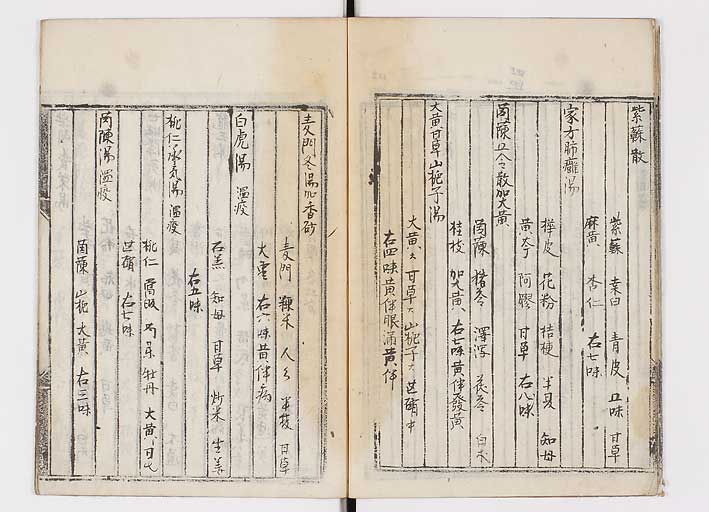 紫蘇散
紫蘇 桑白 青皮 五味 甘草
麻黄 杏仁 右七味
家方肺癰湯
樺皮 花粉 桔梗 半夏 知母
黄芩 阿膠 甘草 右八味
茵蔯五令散加大黄
茵蔯 猪苓 澤泻 茯苓 白朮
桂枝 加大黄 右七味黄伴發黄
大黄甘草山梔子湯
大黄大 甘草大 山梔子大 芒硝中
右四味黄伴眼満黄伴
麦門冬湯加香砂
麦門 粳米 人乡 半夏 甘草
大棗 右六味黄伴病
白虎湯 温疫
石羔 知母 甘草 炒米 生姜
右五味
桃仁承気湯 温疫
桃仁 當皈 芍薬 牡丹 大黄 甘七
芒硝 右七味
茵陳湯 温疫
茵蔯 山梔 大黄 右三味